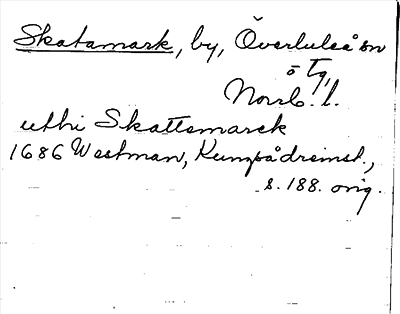 Skatamark, by, Överluleå sn
ö tg,
Norrb. l.
uthi Skattamarck
1686 Westman, Kungsådreinst.,
s. 188. orig.